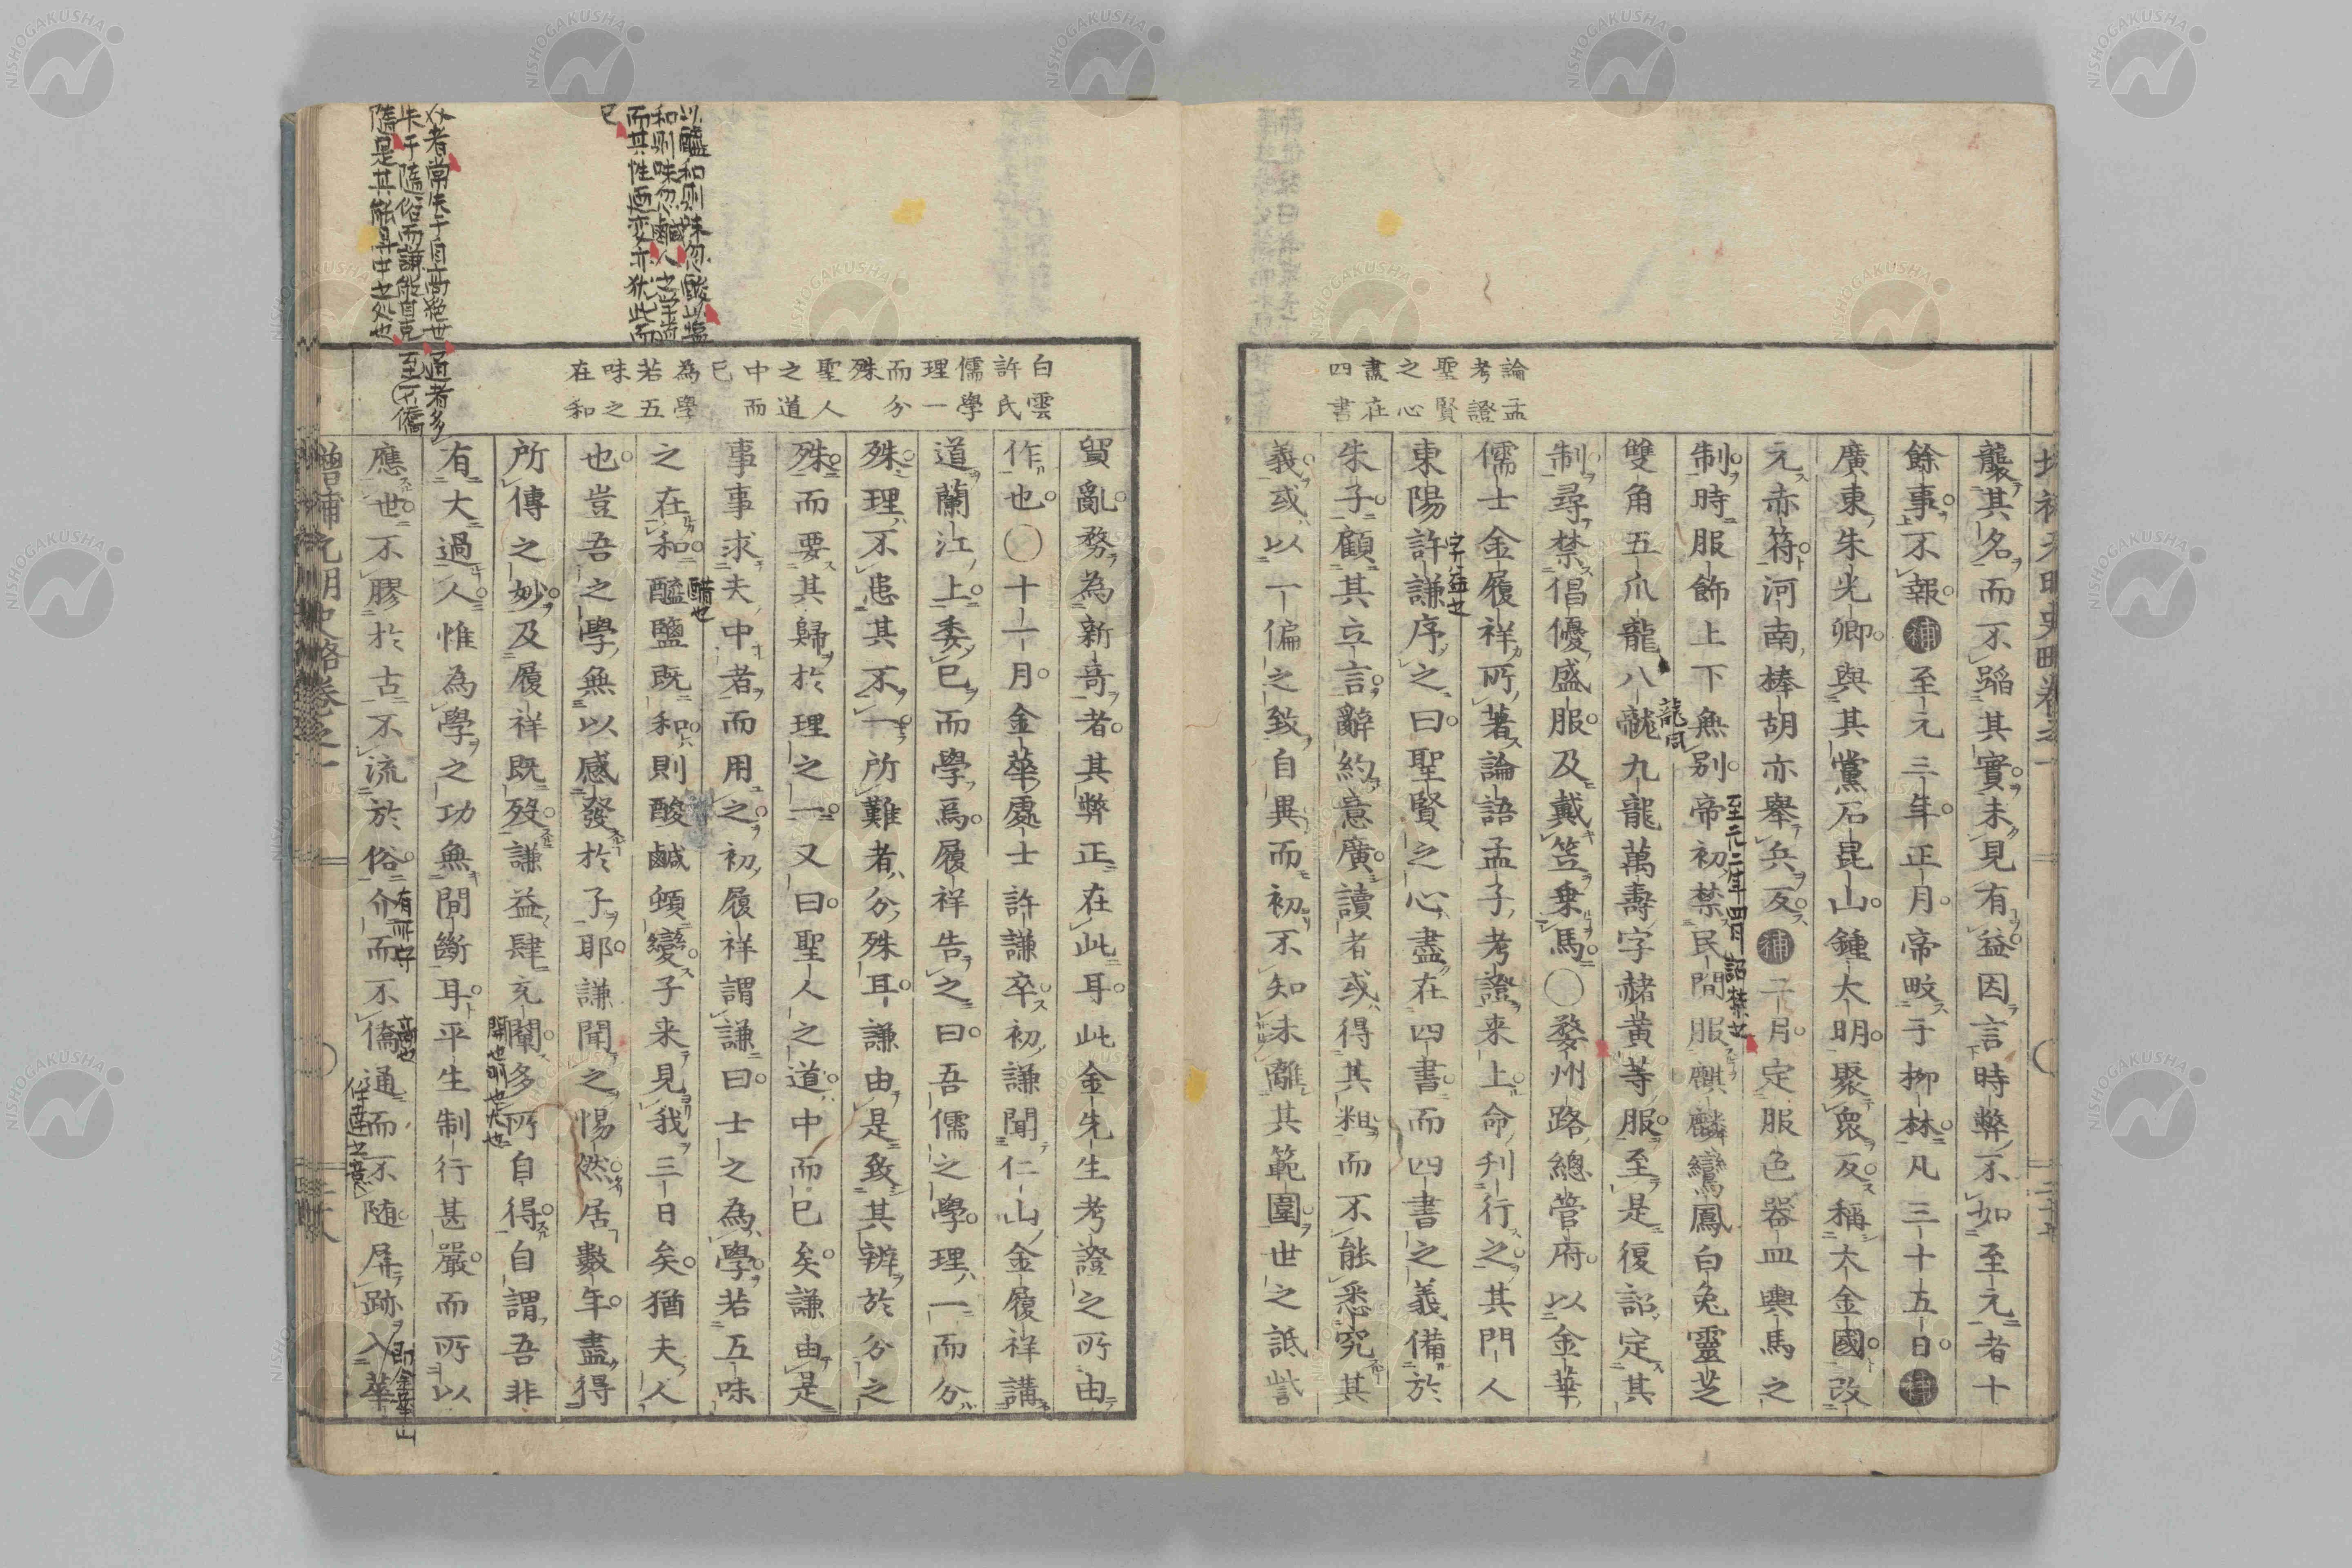 論孟
考證
聖賢
之心
盡在
四書
襲其名而不蹈其實未見有益因言時弊不如至元者十
餘事不報補至元三年正月帝畋于柳林凡三十五日補
廣東朱光卿與其黨石昆山鍾大明聚衆反稱大金國改
元赤符河南棒胡亦舉兵反補二月定服色器皿輿馬之
制時服飾上下無別帝初禁民間服麒麟鸞鳳白兔靈芝
至元二年四月詔禁也
雙角五爪龍八龍九龍萬壽字赭黃等服至是復詔定其
龍同
制尋禁倡優盛服及戴笠乗馬〇婺州路總管府以金華
儒士金履祥所著論語孟子考證来上命刋行之其門人
東陽許謙序之曰聖賢之心盡在四書而四書之義備於
字益之
朱子顧其立言辭約意廣讀者或得其粗而不能悉究其
義或以一偏之致自異而初不知未離其範圍世之詆訾
以醯和則味忽酸以塩
和則味忽鹹人之学道
而其性頓変亦狄此而
已
白雲
許氏
儒學
理一
而分
殊
聖人
之道
中而
已
為學
若五
味之
在和
貿亂務為新竒者其弊正在此耳此金先生考證之所由
作也〇十一月金華處士許謙卒初謙聞仁山金履祥講
道蘭江上委已而學焉履祥告之曰吾儒之學理一而分
殊理不患其不一所難者分殊耳謙由是致其辨於分之
殊而要其歸於理之一又曰聖人之道中而已矣謙由是
事事求夫中者而用之初履祥謂謙曰士之為學若五味
之在和醯鹽既和則酸鹹頓變子来見我三日矣猶夫人
醋也
也豈吾之學無以感發於子耶謙聞之惕然居數年盡得
所傳之妙及履祥既歿謙益肆充闡多所自得自謂吾非
開也明也大也
有大過人惟為學之功無間斷耳平生制行甚嚴而所以
應世不膠於古不流於俗介而不僑通而不随屏跡入華
有所守
高也
即金華山
増補元明史略巻之一